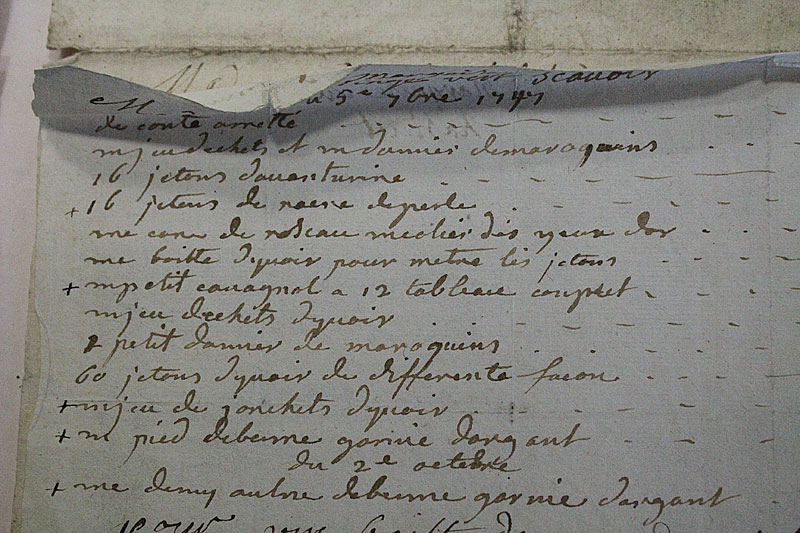 Scavoir
5e 7bre 1747
de conte arretté
un jeu dechets et un damier de maroquins
16 jetons davanturine
+ 16 jetons de nacre de perle
une cane de roseau
une boitte dyvoir pour metre les jetons
+ un petit cavagnol a 12 tableau complet
un jeu dechets dyvoir
2 petit damier de maroquins
60 jetons dyvoir de differente facon
+ un jeu de jonchets dyvoir
+ un pied debenne garnie dargant
du 2e octobre
+ une demy aulne debenne garnie dargant